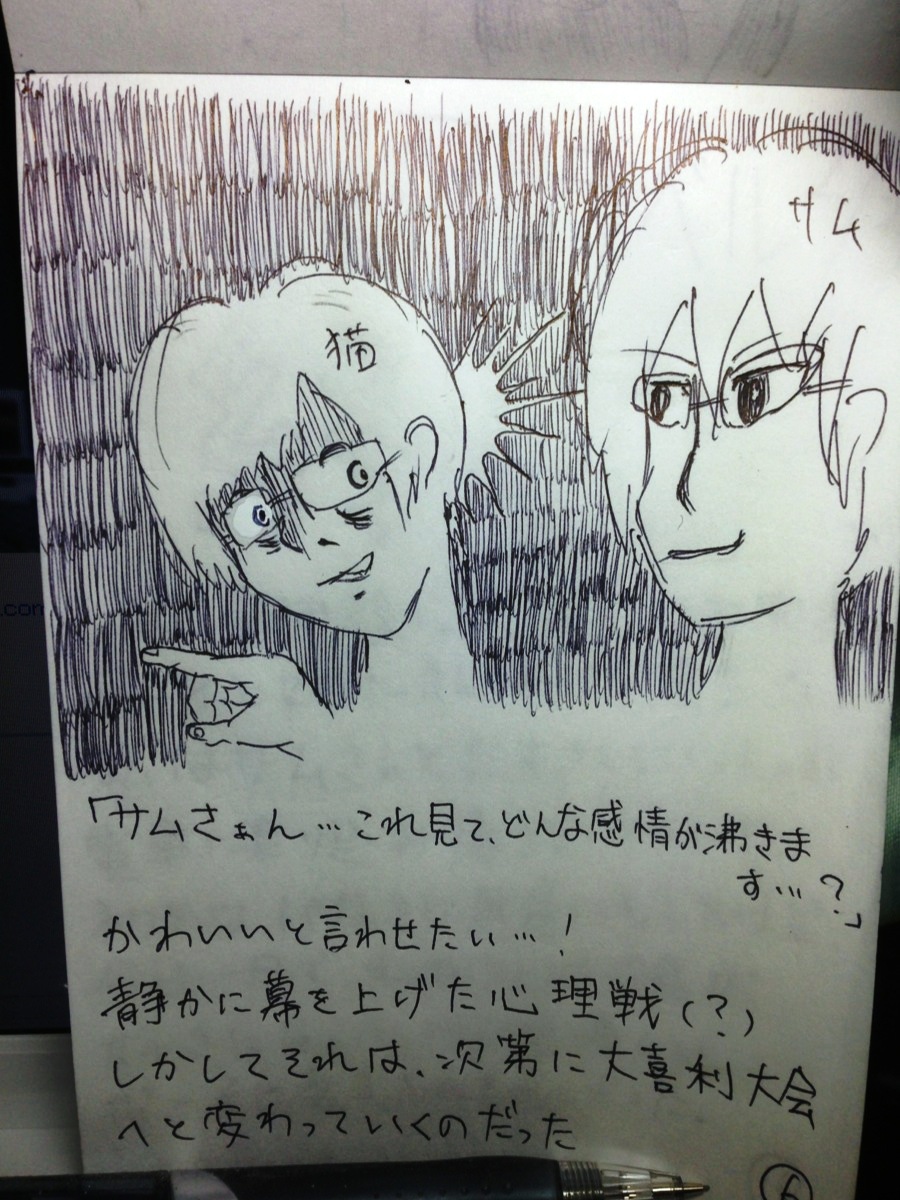 サム
猫
「サムさぁん…これ見て、どんな感情が沸きま
す…?」
かわいいと言わせたい…!
静かに幕を上げた心理戦(?)
しかしてそれは、次第に大喜利大会
へと変わっていくのだった
.com